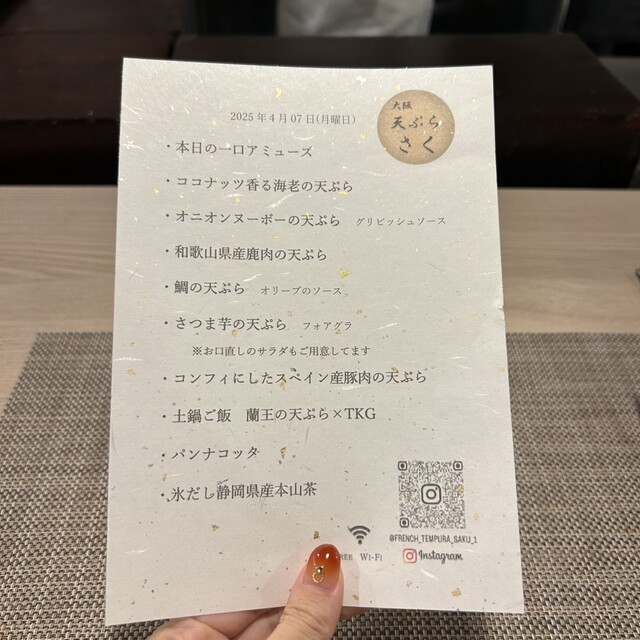 2025年4月07日(月曜日)
大阪
天ぷら
さく
・本日の一口アミューズ
・ココナッツ香る海老の天ぷら
・オニオンヌーボーの天ぷら グリビッシュソース
・和歌山県産鹿肉の天ぷら
・鯛の天ぷら オリーブのソース
・さつま芋の天ぷら フォアグラ
※お口直しのサラダもご用意してます
・コンフィにしたスペイン産豚肉の天ぷら
・土鍋ご飯 蘭王の天ぷら×TKG
・パンナコッタ
・氷だし静岡県産本山茶
@FRENCH_TEMPURA_SAKU_1
Wi-Fi
Instagram